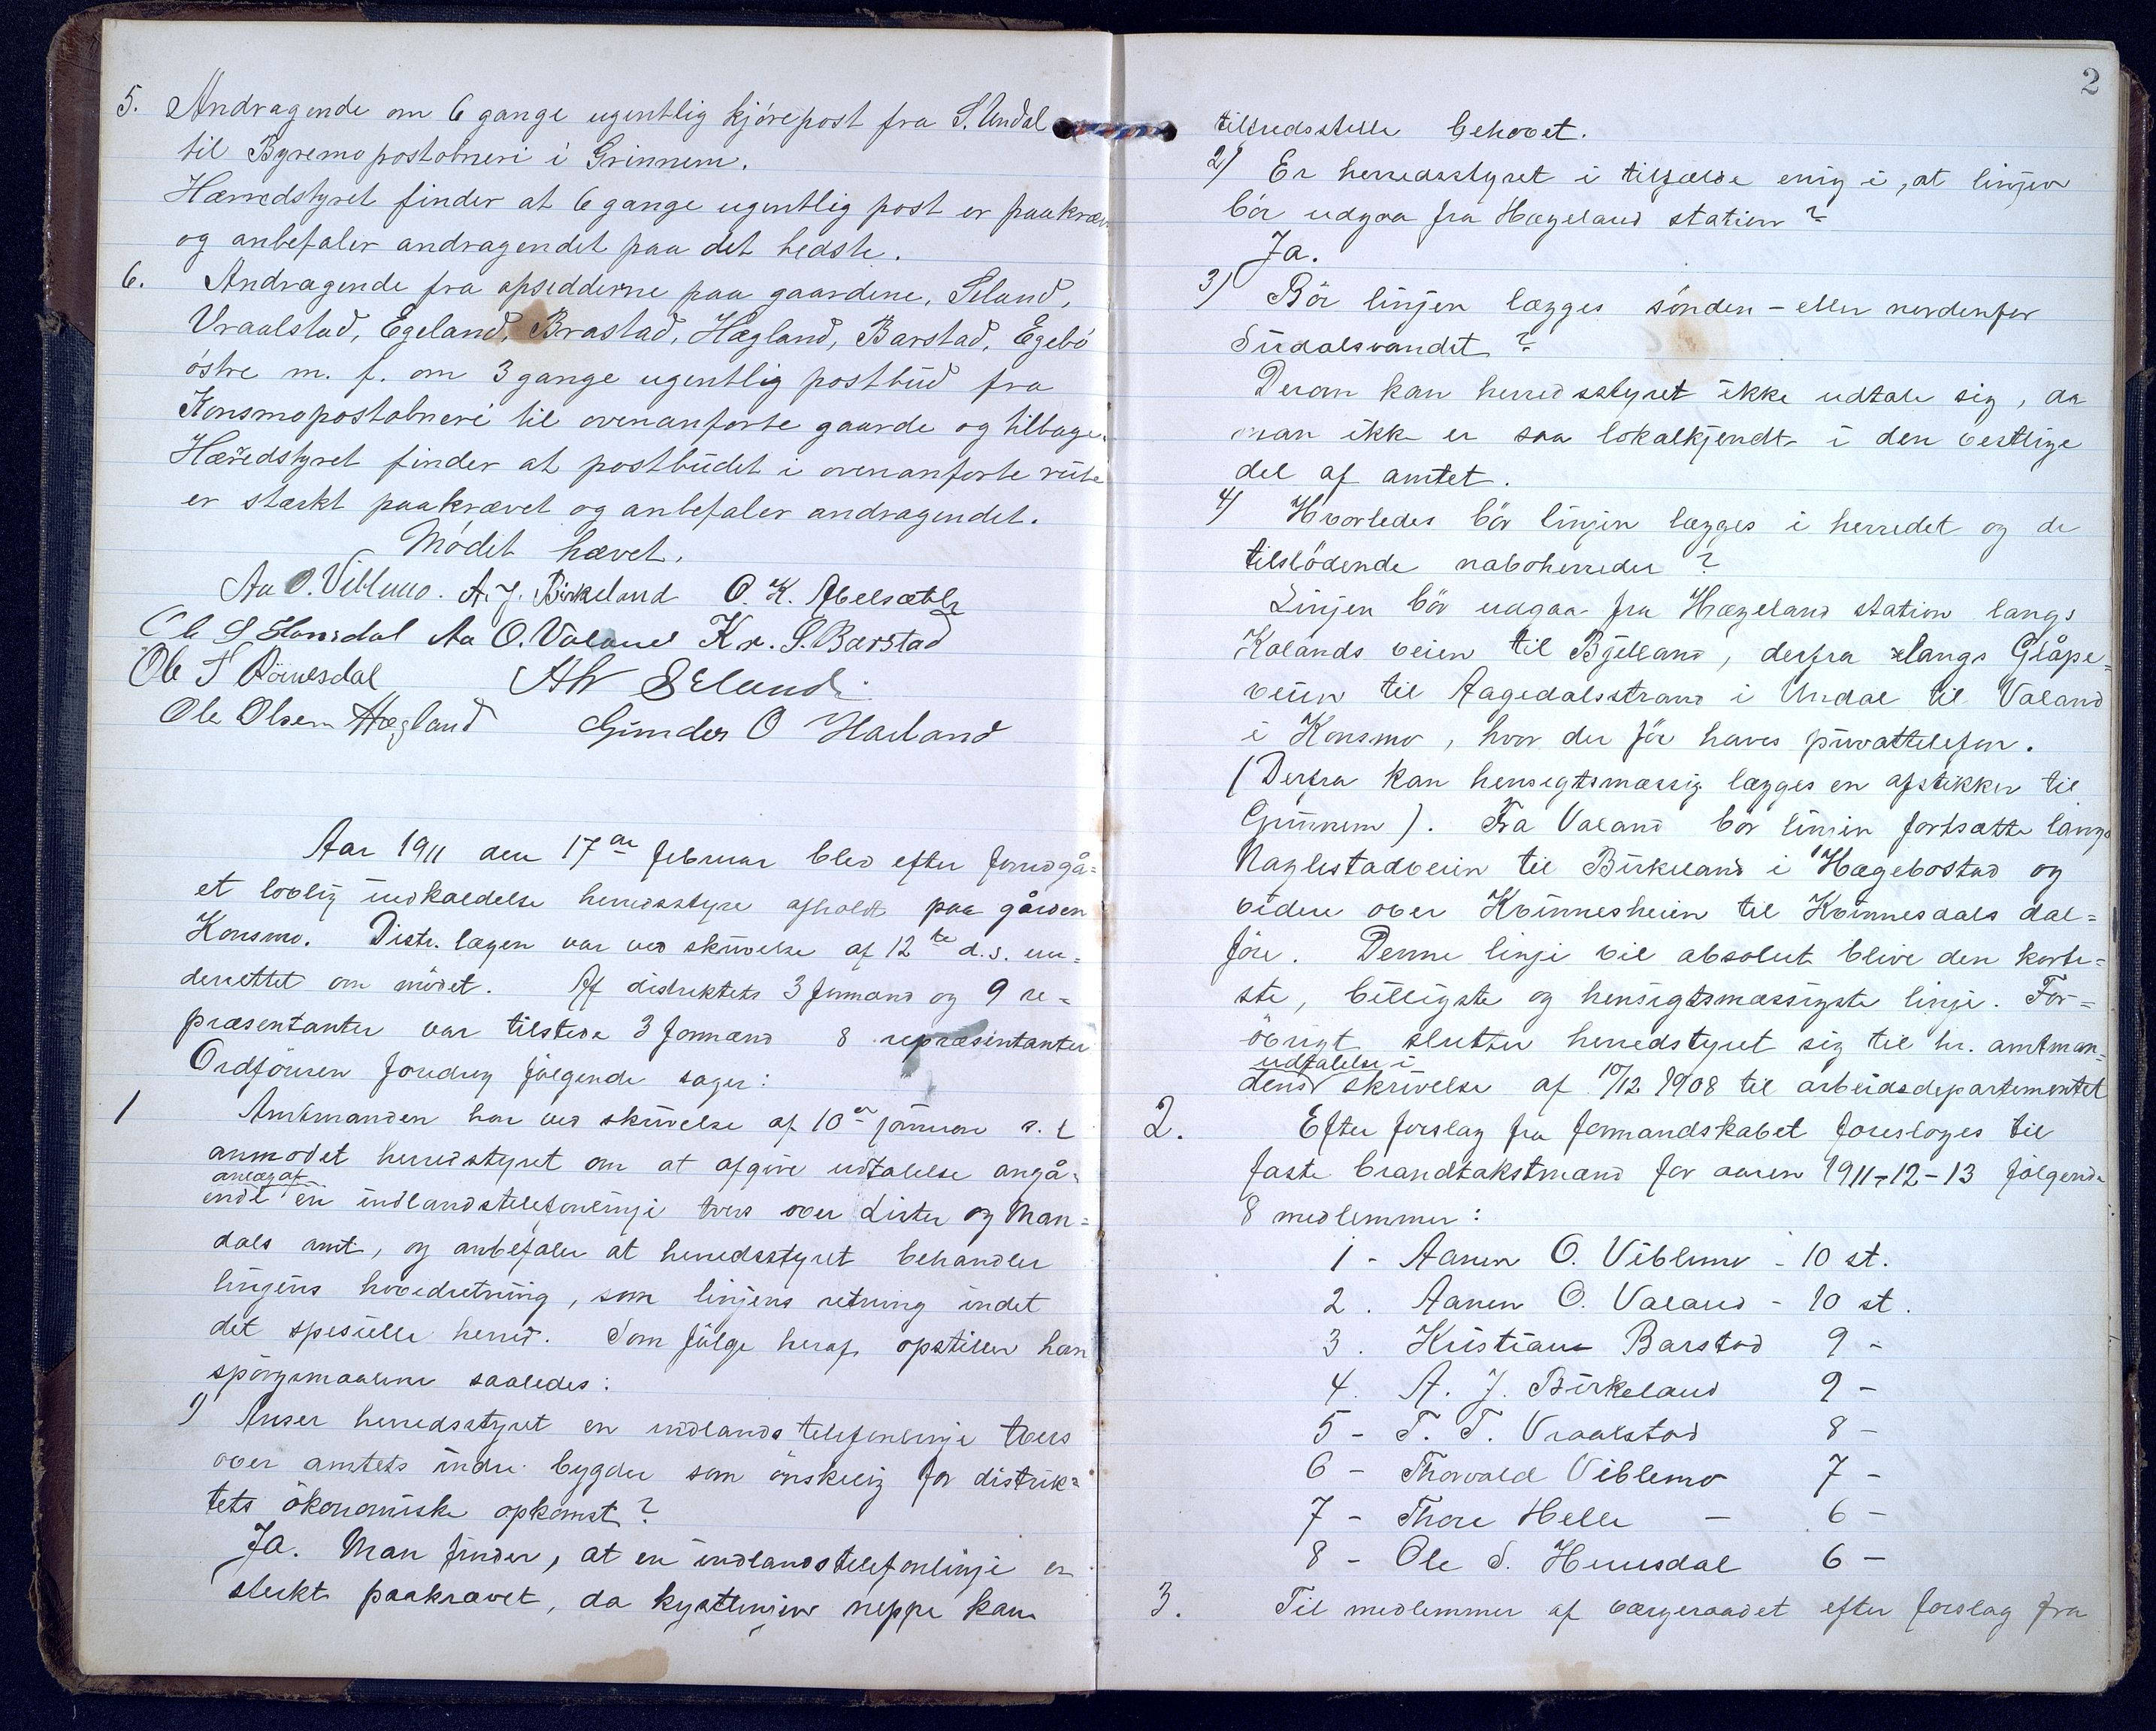 5. Andragende om 6 gange ugentlig kjörepost fra S. Undal
til Byremo postabneri i Grinnem.
Hærredstyret finder at 6 gange ugentlig post er paakræv
og anbefaler andragendet paa det bedste.
6. Andragende fra opsidderne paa gaardene, Seland,
Vraalstad, Egeland, Brastad, Hægland, Barstad, Egebö
östre m. f. om 3 gange ugentlig postbud fra
Konsmo postabneri til ovenanförte gaarde og tilbage.
Hærredstyret finder at postbudet i ovenanförte rute
er stærkt paakrævet og anbefaler andragendet.
Mödet hævet.
Aa O. Viblemo. A. J. Birkeland O. K. Abelsæth
Ole S. Aa O. Valand Kr. S. Barstad
Ole T Röinesdal Seland
Ole Olsen Hægland Gunder O Harland
Aar 1911 den 17de februar blev efter forudgå-
et lovlig indkaldelse herredsstyre afholdt paa gården
Konsmo. Distr. lægen var ved skrivelse af 12te d.s. un-
derrettet om mödet. Af distriktets 3 formænd og 9 re-
præsentanter var tilstede 3 formænd 8 repræsentanter
Ordföreren foredrog fölgende sager:
1 Amtmanden har ved skrivelse af 10de januar s. l
anmodet herredstyret om at afgive udtalelse angå-
anlæg af
ende en indlandstelefonlinje tvers over Lister og Man-
dals amt, og anbefaler at herredsstyret behandler
linjens hovedretning, som linjens retning indet
det spesielle herred. Som fölge heraf opstiller han
spörgsmaalene saaledes:
1) Anser herredsstyret en indlands telefonlinje tvers
over amtets indre bygder som önskelig for distrik-
tets ökonomiske opkomst?
Ja. Man finder, at en indlandstelefonlinje er
sterkt paakrævet, da kystlinjen neppe kan
2
tilfredsstille behovet.
2) Er herredsstyret i tilfælde enig i, at linjen
bör udgaa fra Hægeland station?
Ja.
3) Bör linjen lægges sönden - eller nordenfor
Sirdalsvandet?
Derom kan herredsstyret ikke udtale sig, da
man ikke er saa lokalkjendt i den vestlige
del af amtet.
4) Hvorledes bör linjen lægges i herredet og de
tilstödende naboherreder?
Linjen bör udgaa fra Hægeland station langs
Kolands veien til Bjelland, derfra langs Glåpe-
veien til Aagedalsstrand i Undal til Valand
i Konsmo, hvor der för haves privattelefon.
(Derfra kan hensigtsmæssig lægges en afstikker til
Grinnem). Fra Valand bör linjen fortsætte langs
Naglestadveien til Birkeland i Hægebostad og
videre over Kvinnesheien til Kvinnesdals dal-
före. Denne linje vil absolut blive den korte-
ste, billigste og hensigtsmæssigste linje. For-
övrigt slutter herredstyret sig til hr. amtman-
udtalelse i
dens skrivelse af 10/12 1908 til arbeidsdepartementet
2. Efter forslag fra formandskabet foresloges til
faste brandtakstmænd for aaren 1911-12-13 fölgende
8 medlemmer:
1 - Aanen O. Viblemo - 10 st.
2. Aanen O. Valand - 10 st.
3. Kristian Barstad 9 -
4. A. J. Birkeland 9 -
5 - T. T. Vraalstad 8 -
6 - Thorvald Viblemo 7 -
7 - Thore Helle - 6 -
8 - Ole S. 6 -
3. Til medlemmer af værgeraadet efter forslag fra